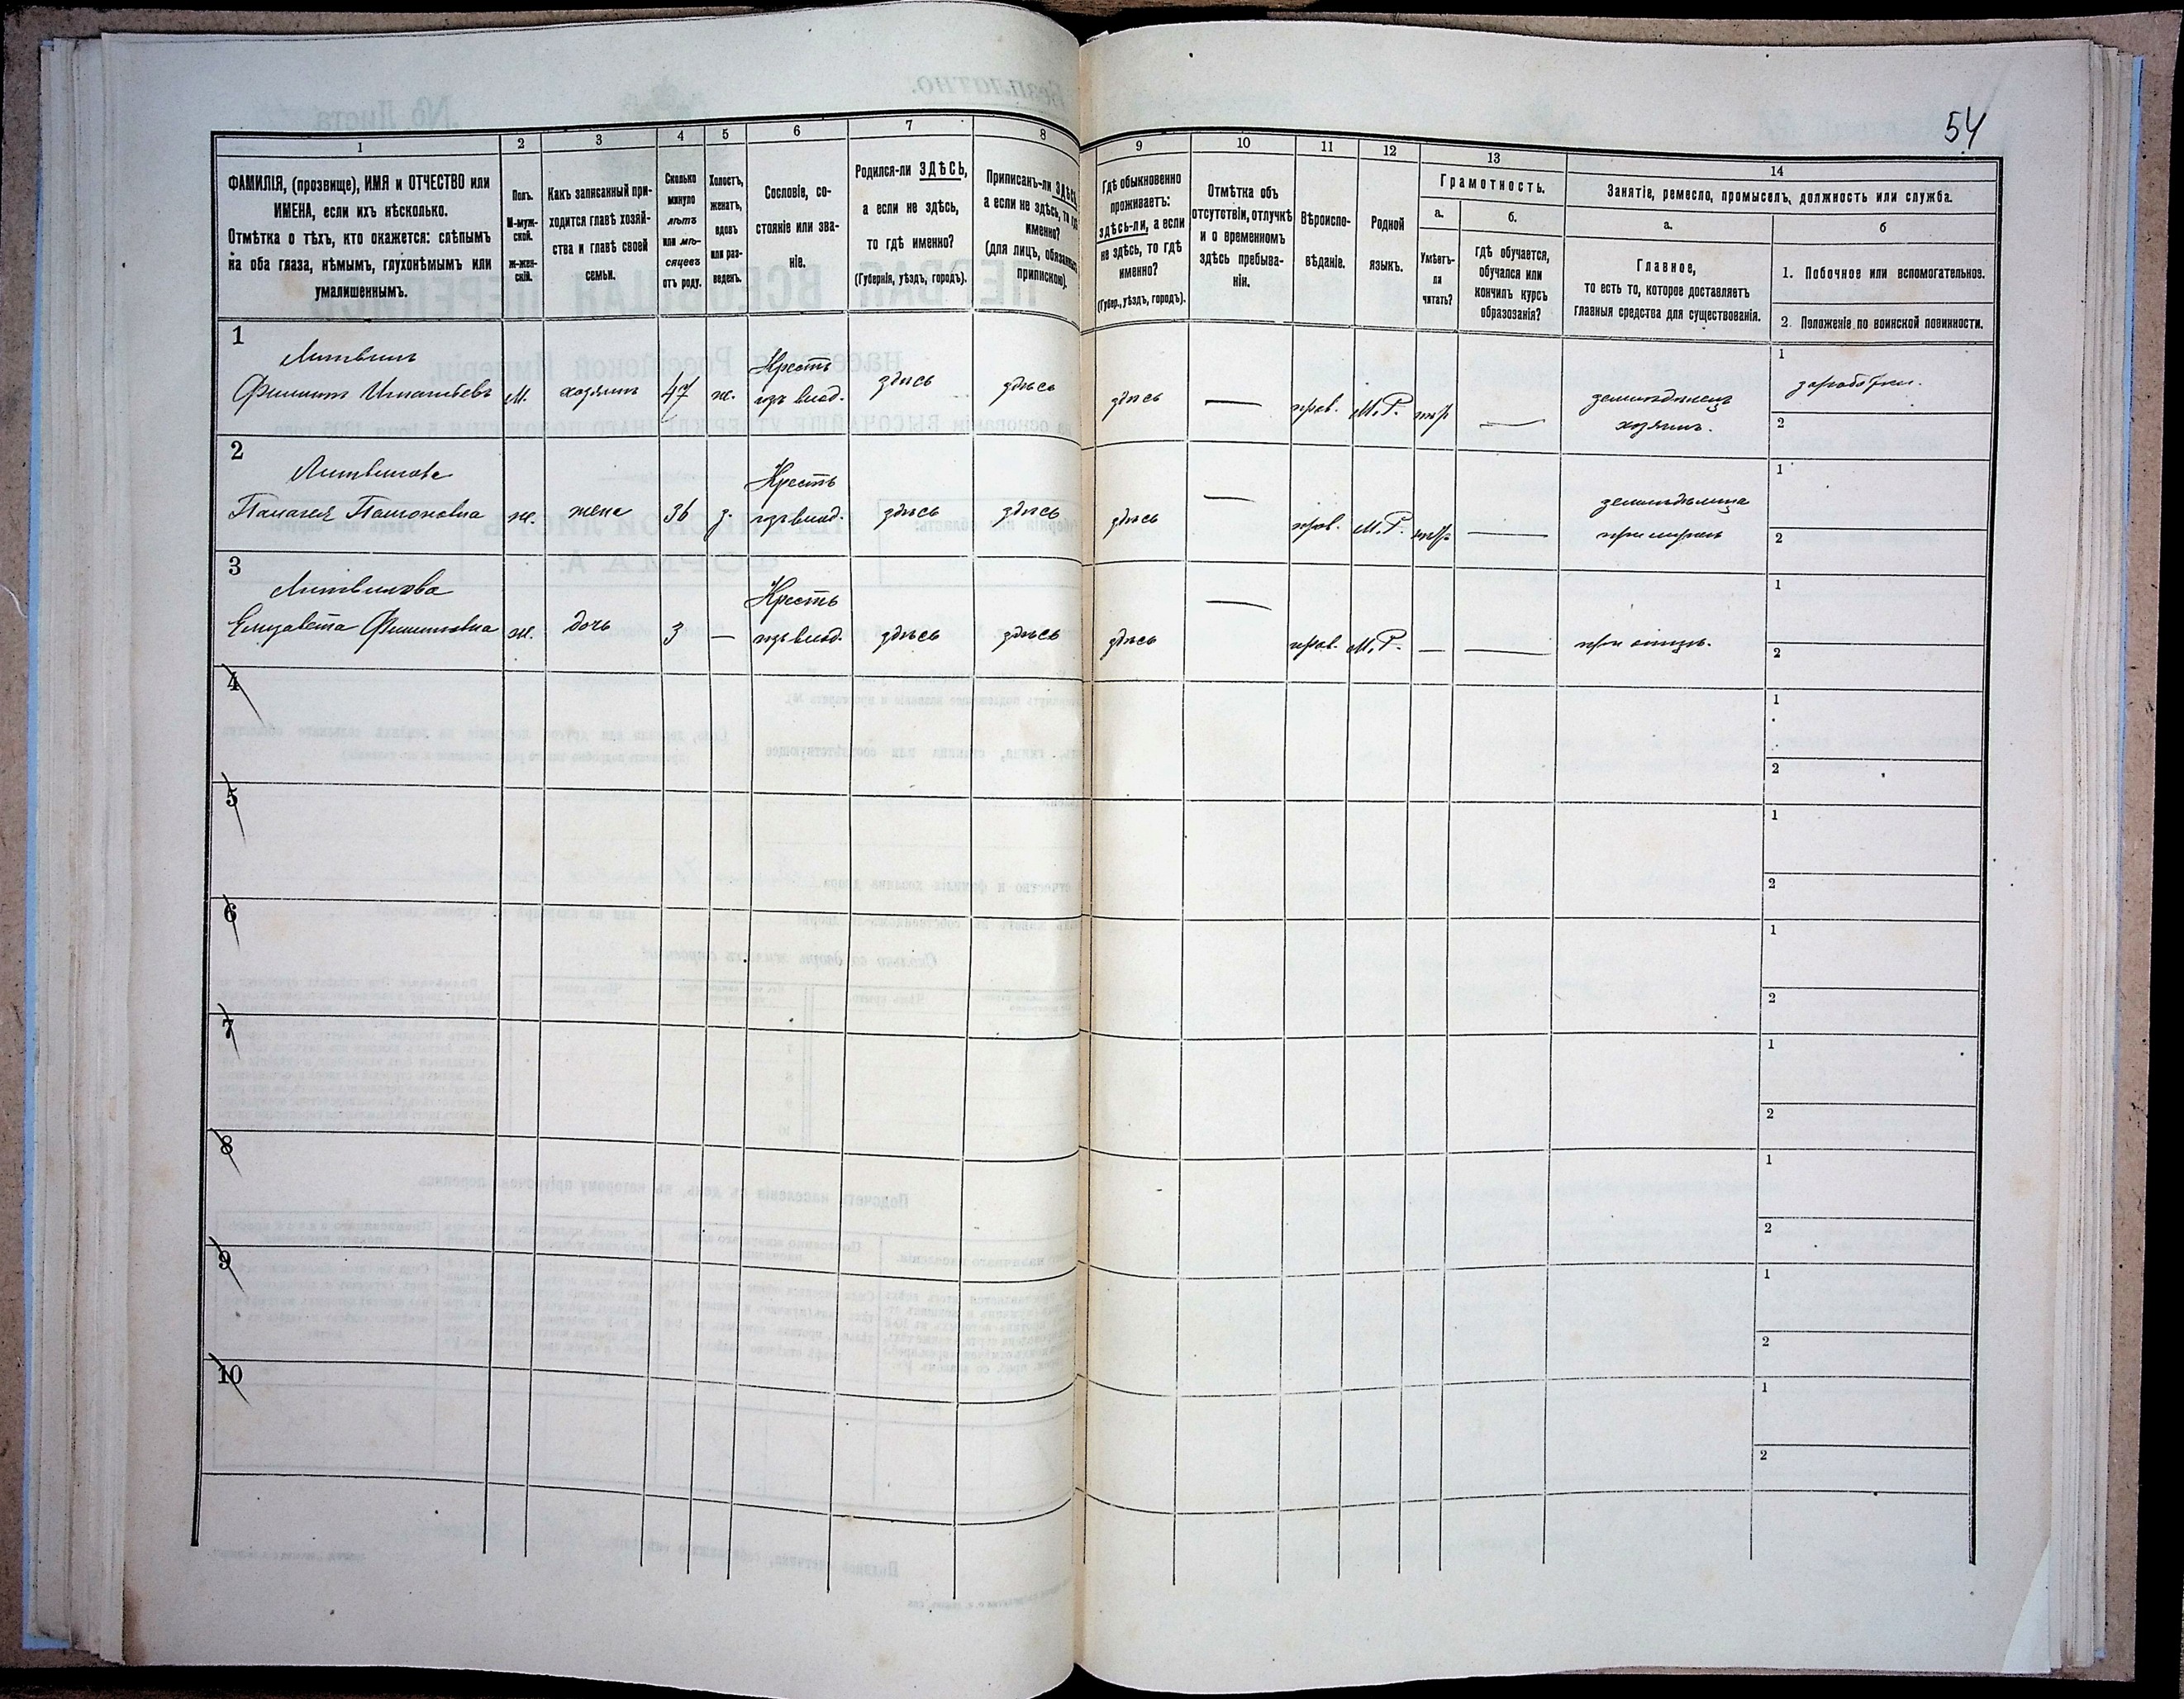 54
1
2
3
4
5
6
7
8
9
10
11
12
13
14
ФАМИЛІЯ, (прозвище), ИМЯ и ОТЧЕСТВО или
ИМЕНА, если ихъ нѣсколько.
Отмѣтка о тѣхъ, кто окажется: слѣпымъ
на оба глаза, нѣмымъ, глухонѣмымъ или
умалишеннымъ.
Полъ.
М-муж-
ской.
ж-жен-
скій.
Какъ записанный при-
ходится главѣ хозяй-
ства и главѣ своей
семьи.
Сколько
минуло
лѣтъ
или мѣ-
сяцевъ
отъ роду.
Холостъ,
женатъ,
вдовъ
или раз-
веденъ.
Сословіе, со-
стояніе или зва-
ніе.
Родился-ли ЗДѢСЬ,
а если не здѣсь,
то гдѣ именно?
(Губернія, уѣздъ, городъ).
Приписанъ-ли ЗДѢСЬ,
а если не здѣсь, то гдѣ
именно?
(для лицъ, обязанныхъ
припискою).
Гдѣ обыкновенно
проживаетъ:
здѣсь-ли, а если
не здѣсь, то гдѣ
именно?
(Губер., уѣздъ, городъ).
Отмѣтка объ
отсутствіи, отлучкѣ
и о временномъ
здѣсь пребыва-
ніи.
Вѣроиспо-
вѣданіе.
Родной
языкъ.
Грамотность.
а.
Умѣетъ-
ли
читать?
б.
гдѣ обучается,
обучался или
кончилъ курсъ
образозанія?
Занятіе, ремесло, промыселъ, должность или служба.
а.
Главное,
то есть то, которое доставляетъ
главныя средства для существованія.
б
1. Побочное или вспомогательное.
2. Положеніе по воинской повинности.
1
Литвинъ
Филиппъ Игнатьевъ
М.
хозяинъ
47
ж.
Крестъ
изъ влад.
здѣсь
здѣсь
здѣсь
—
прав.
М.Р.
—
земледѣлецъ
хозяинъ.
1
заработки.
2
2
Литвинова
ж.
жена
36
з.
Крестъ
изъ влад.
здѣсь
здѣсь
здѣсь
—
прав.
М.Р.
—
1
2
3
Литвинова
Елизавета Филиповна
ж.
дочь
3
—
Крестъ
изъ влад.
здѣсь
здѣсь
здѣсь
—
прав.
М.Р.
—
—
при отцѣ.
1
2
4
1
2
5
1
2
6
1
2
7
1
2
8
1
2
9
1
2
10
1
2